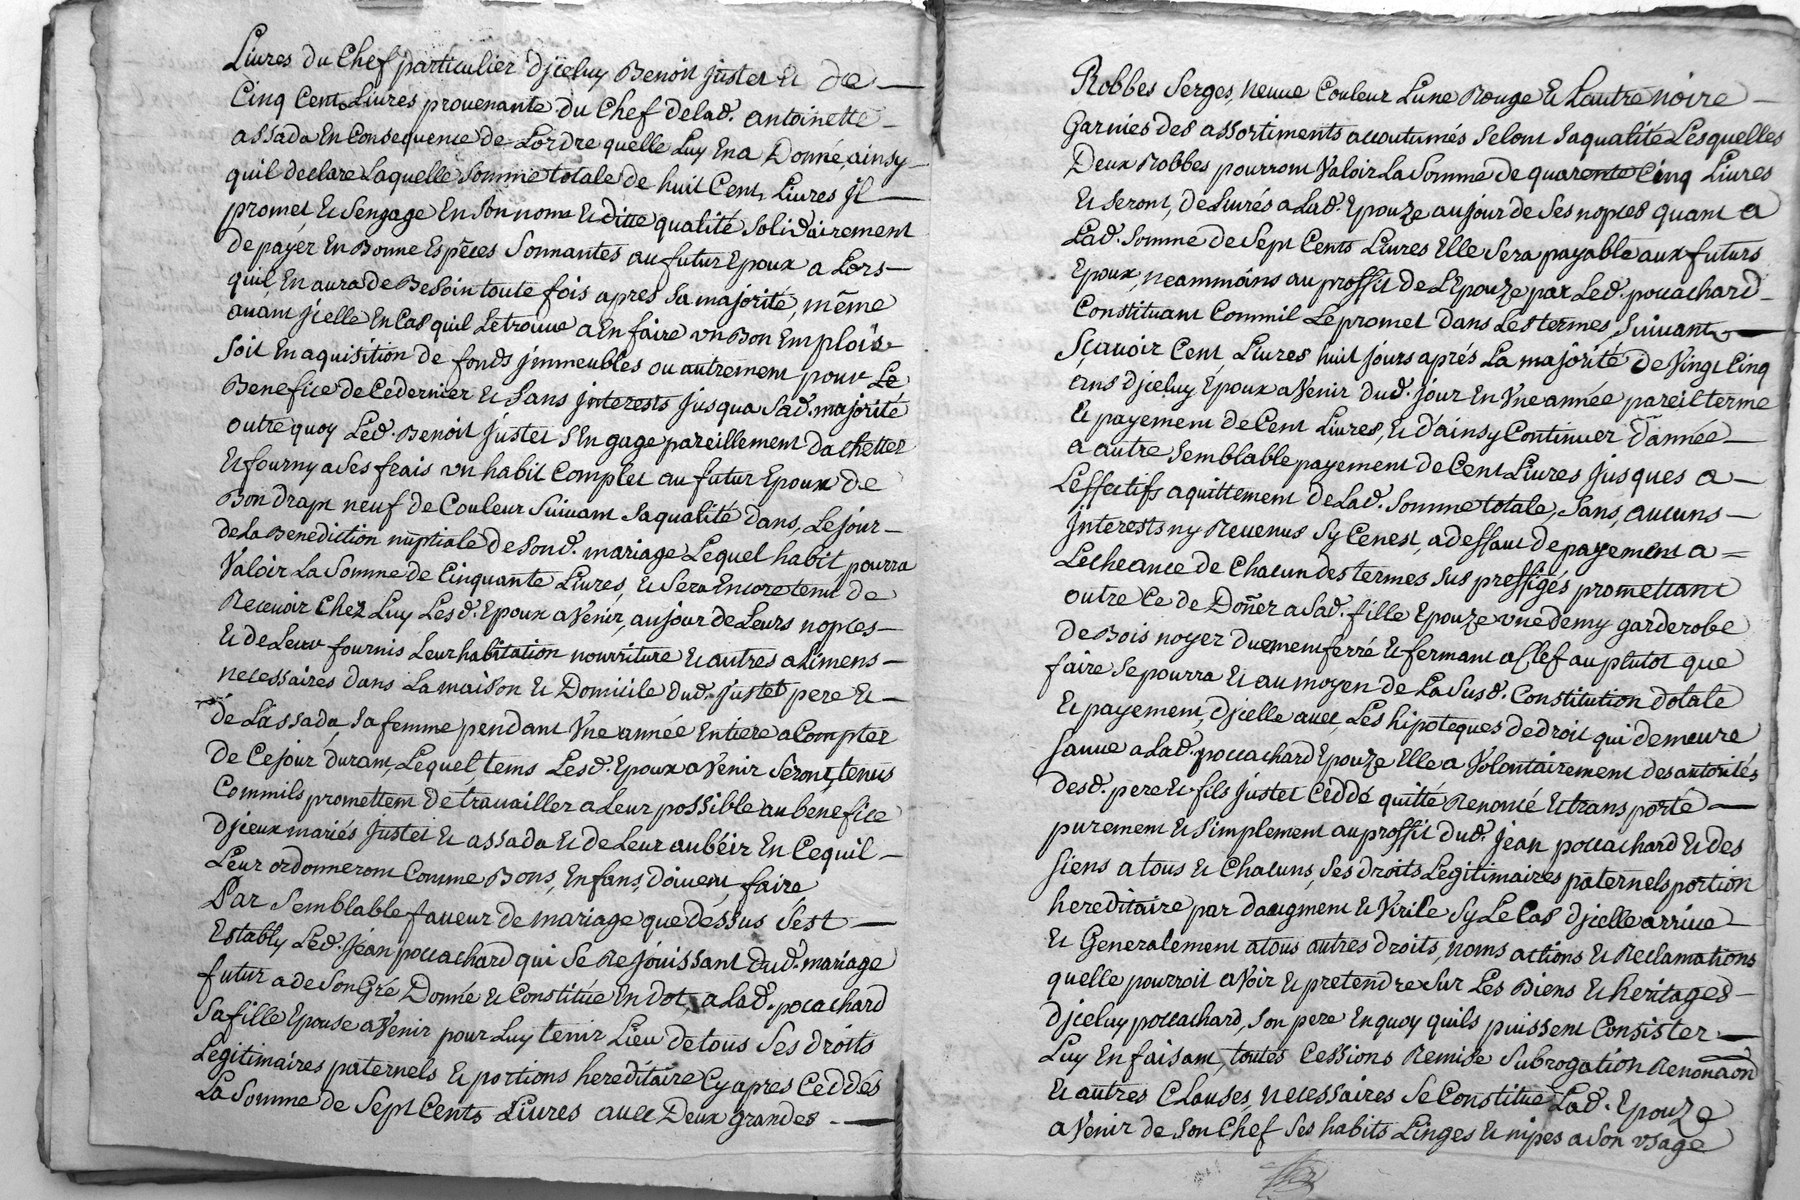 Livres du Chef particulier djceluy Benoit justet et de
Cinq Cent Livres prouenante du Chef delad. antoinette
assada En Consequence de Lordre quelle Luy En a Donné, ainsy
quil declare Laquelle Somme totale de huit Cent Livres jl
promet et Sengage En Son nom et ditte qualité Solidairement
de payér En Bonne Espéces Sonnantes au futur Epoux a Lors
quil En aura de Besoin toute fois apres Sa majorité, méme
auant jcelle En Cas quil Le trouue a En faire vn Bon Emplois
Soit En aquisition de fonds jmmeubles ou autrement pour Le
Benefice de Ce dernier et Sans jnterests jusqua Sad. majorité
outre quoy Led. Benoit justet S'Engage pareillement dachetter
et fourny a Ses frais vn habit Complet au futur Epoux de
Bon drap neuf de Couleur Suiuant Sa qualité dans Le jour
de La Benediction nuptiale de Sond. mariage Lequel habit pourra
Valoir La Somme de Cinquante Livres, et Sera Encore tenu de
Receuoir Chez Luy Lesd. Epoux a Venir, au jour de Leurs nopces
et de Leur fournis Leur habitation nourriture et autres alimens
necessaires dans La maison et Domicile dud. justet pere et
de Lassada, Sa femme pendant Vne année Entiere a Compter
de Ce jour durant Lequel tems Lesd. Epoux a Venir Seront tenus
Commils promettent de trauailler a Leur possible au bénefice
djceux mariés justet et assada et de Leur aubéir En Ce quil
Leur ordonneront Comme Bons, Enfans, doiuent faire
Par Semblable faueur de mariage que déssus S'est
Estably Led. jean pocachard qui Se Réjouissant dud. mariage
futur a de Son Gré Donné et Constitué En dot, a Lad. pocachard
Sa fille Epouse a Venir pour Luy tenir Lieu de tous Ses droits
Legitimaires paternels et portions hereditaire Cy apres Ceddés
La Somme de Sept Cents Livres auec Deux grandes
Robbes Serges, neuue Couleur Lune Rouge et Lautre noire
Garnies des assortiments accoutumés Selont Sa qualité Lesquelles
Deux Robbes pourront Valoir La Somme de quarente Cinq Livres
et Seront, déLiurés a Lad. Epouze au jour de Ses nopces quant a
Lad. Somme de Sept Cents Livres Elle Sera payable aux futurs
Epoux, neammoins au proffit de LEpouze par Led. pocachard
Constituant Commil Le promet dans Les termes Suiuant
Sçauoir Cent Livres huit jours aprés La majorité de Vingt Cinq
ans djceluy Epoux a Venir dud. jour En Vne année pareil terme
et payement de Cent Livres, et dainsy Continuer d'année
a autre Semblable payement de Cent Livres jusques a
Leffectifs aquittement de Lad. Somme totale, Sans, aucuns
jnterests ny Reuenus Sy Cenest, a deffaut de payement a
Lecheance de Chacun des termes Sus preffigés promettant
outre Ce de Doñer a Sad. fille Epouze vne demy garderobe
de Bois noyer duement ferré et fermant a Clef au plutot que
faire Se pourra et au moyen de La Susd. Constitution dotale
et payement, djcelle auec Les hipoteques de droit qui demeure
Sauue a Lad. pocachard Epouze Elle a Volontairement des autorités
desd. pere et fils justet Ceddé quitté Renoncé et transporté
purement et Simplement au proffit dud. jean pocachard et des
Siens a tous et Chacuns, Ses droits Legitimaires paternels portion
hereditaire par daugment et Virile Sy Le Cas djcelle arriue
et Generalement a tous autres droits, noms actions et Reclamations
quelle pourroit a Voir et pretendre Sur Les Biens et heritages
djceluy pocachard, Son pere En quoy quils puissent Consister
Luy En faisant, toutes Cessions Remise Subrogation Renonāon
et autres Clauses, necessaires Se Constitue Lad. Epouze
a Venir de Son Chef Ses habits Linges et nipes a Son vsage